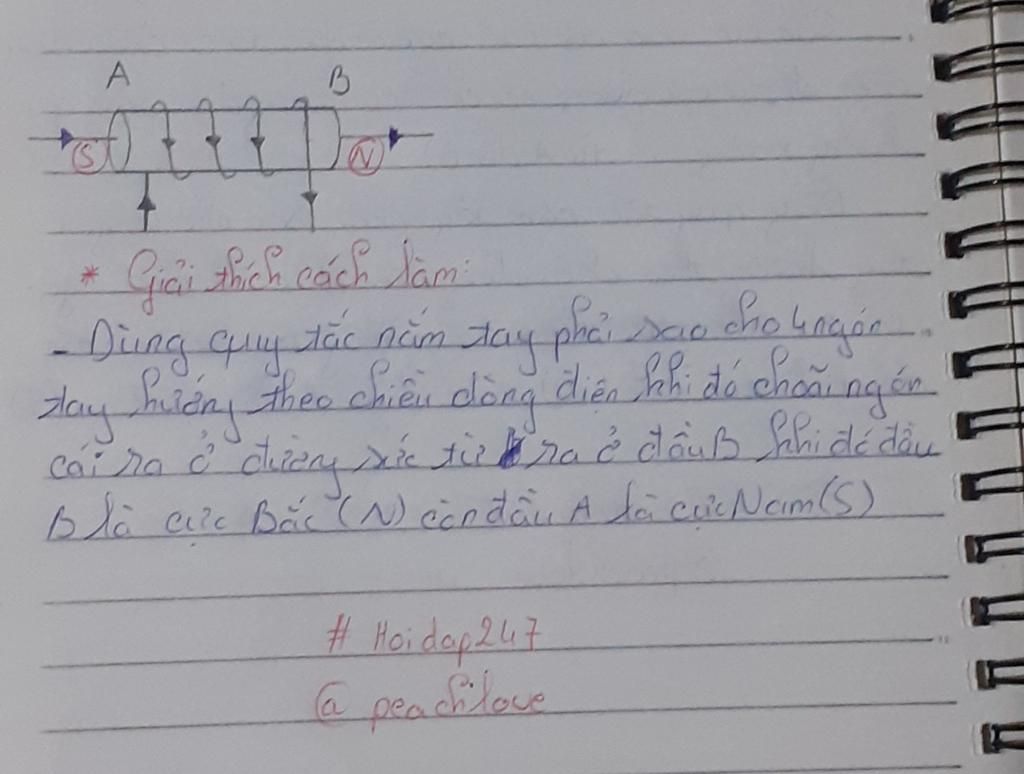 A B
S N
* Giải thích cách làm:
- Dùng quy tắc nắm tay phải sao cho 4 ngón
tay hướng theo chiều dòng điện khi đó choãi ngón
cái ra ở đường sức từ ra ở đầu B khi đó đầu
B là cực Bắc (N) còn đầu A là cực Nam (S)
# Hoidap247
@ peachilove